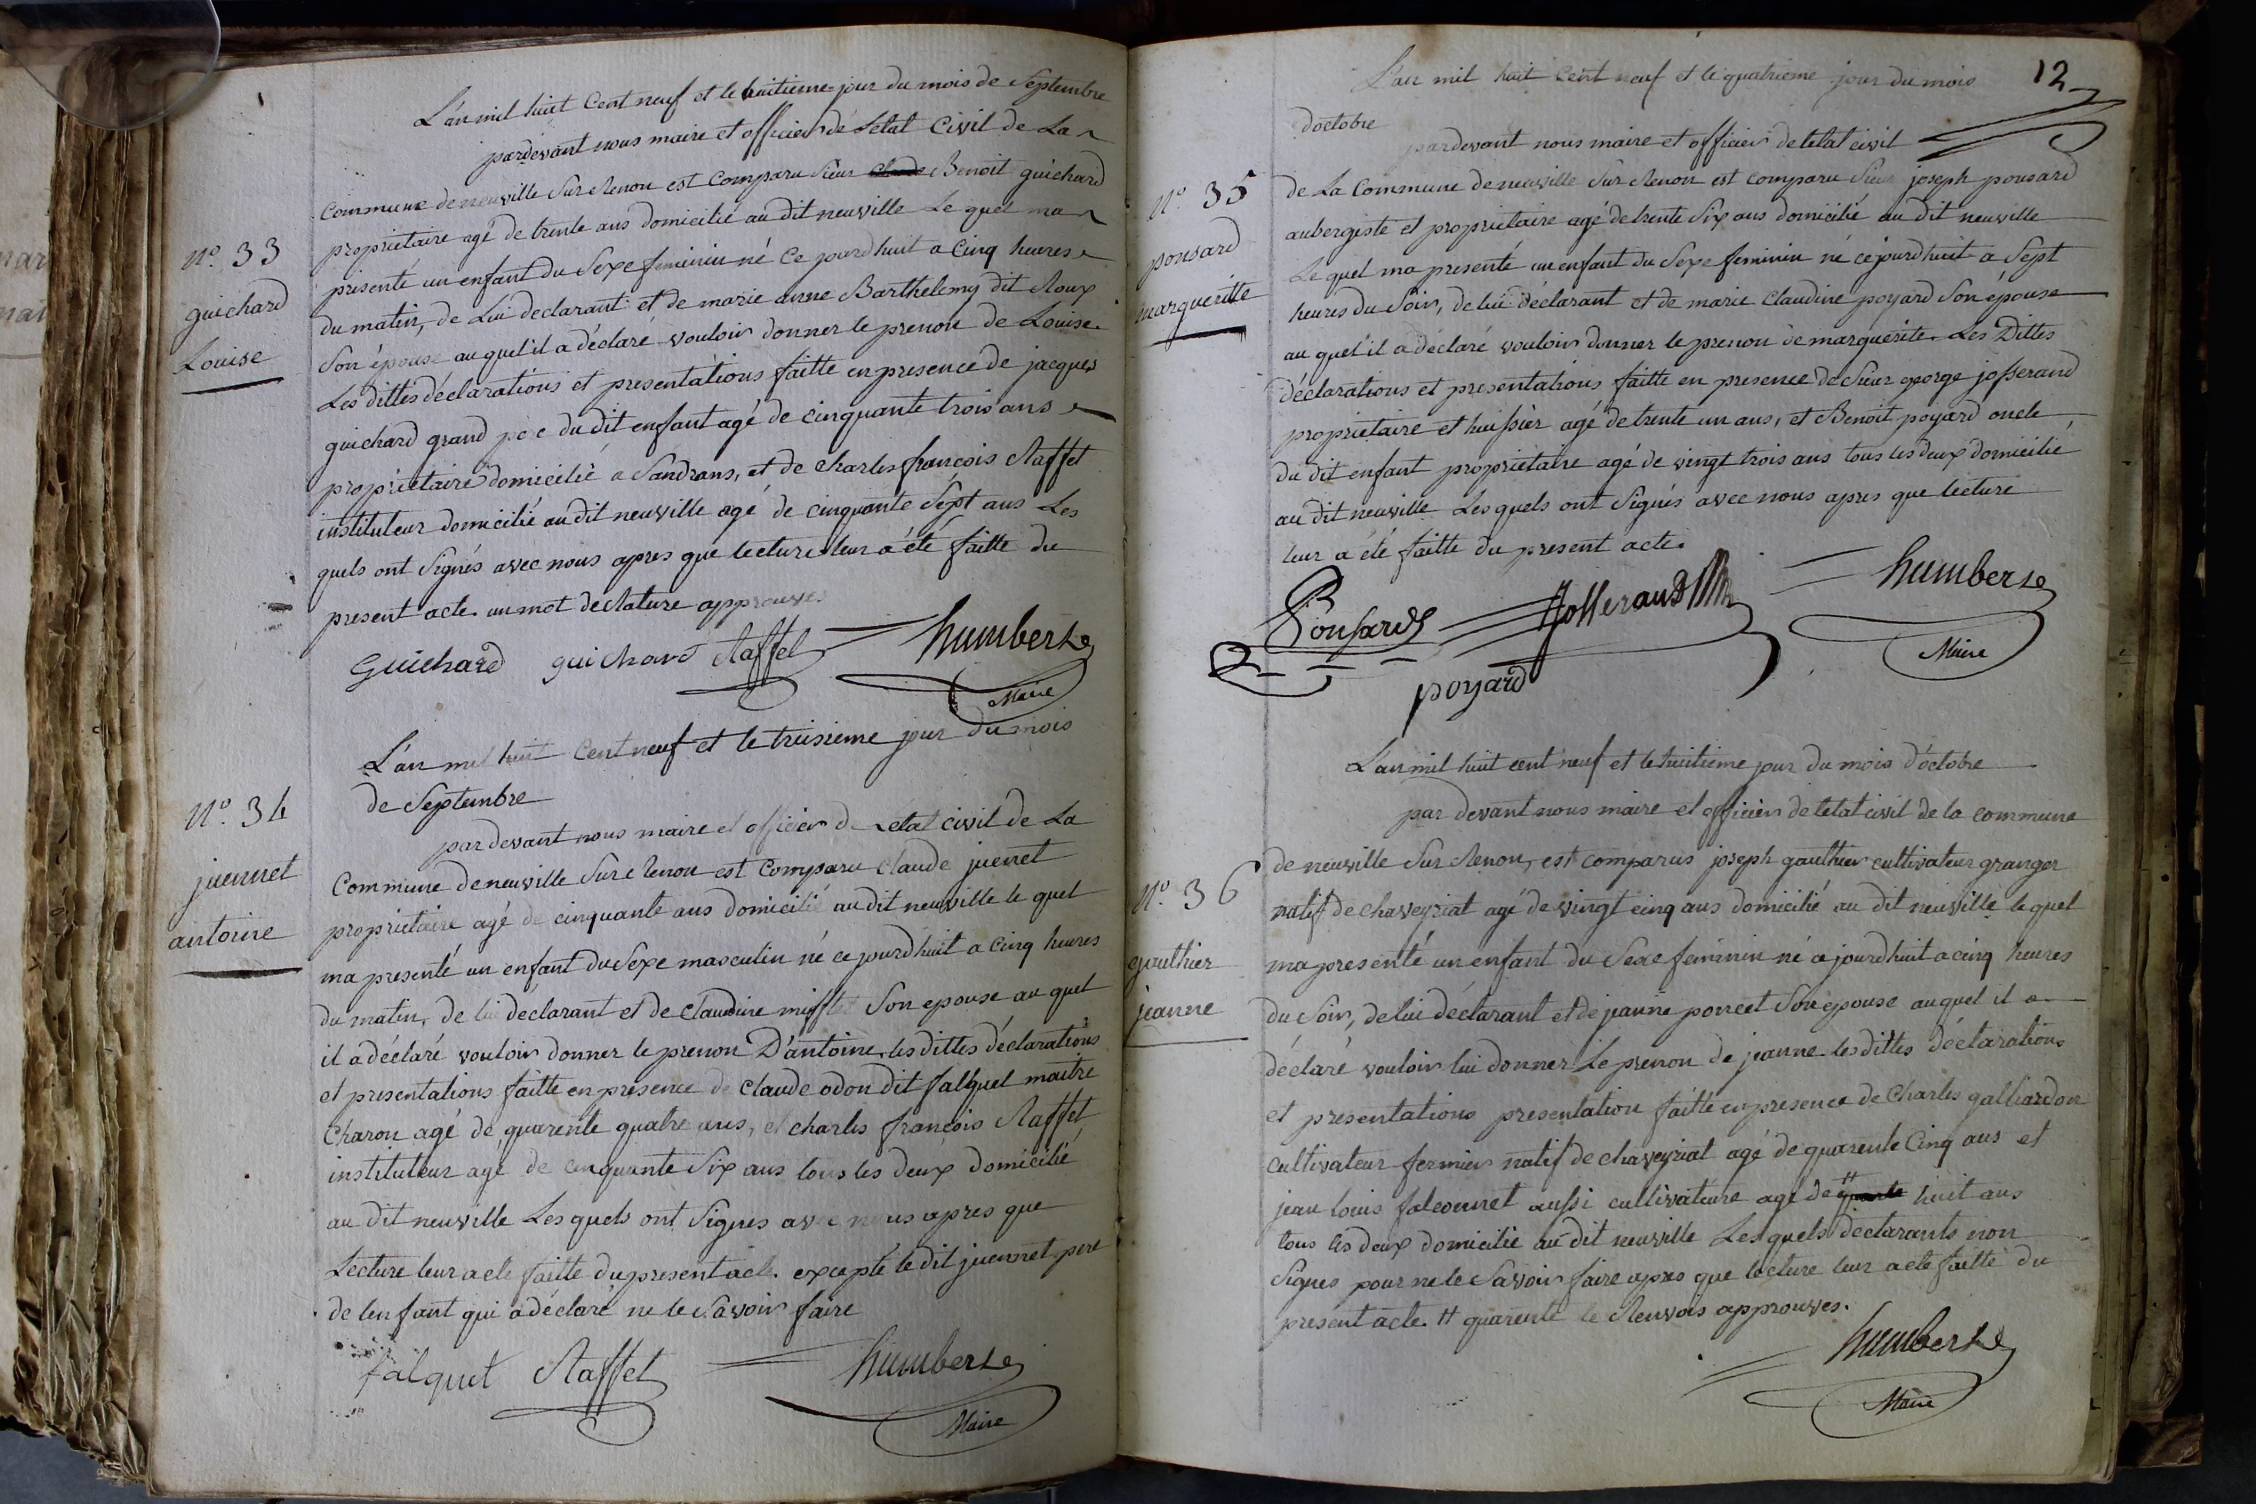 L'an mil huit Cent neuf et le huitieme jour du mois de Septembre
pardevant nous maire et officier de Letat Civil de La
Commune de neuville Sur Renon est Comparu Sieur Benoit guichard
nº. 33
guichard
Louise
proprietaire agé de trente ans domicilié au dit neuville Le quel ma
présenté un enfant du Sexe feminin né Ce jourdhuit a Cinq heures
du matin, de Lui declarant et de marie anne Barthelemy dit Roux
Son épouse au quel il a déclaré vouloir donner le prenon de Louise.
Les dittes déclarations et presentations faitte en presence de jacques
guichard grand père du dit enfant agé de cinquante trois ans
propriètaire domicilié a Sandrans, et de charles françois Raffet
instituteur domicilié au dit neuville agé de cinquante Sept ans Les
quels ont Signés avec nous apres que lecture leur a été faitte du
present acte. un mot de rature approuvé.
Guichard guichard Raffet humbert
Maire
L'an mil huit Cent neuf et le troisieme jour du mois
de Septembre
nº. 34
juennet
antoine
pardevant nous maire et officier de Letat civil de La
Commune de neuville Sur Renon est Comparu Claude juenet
proprietaire agé de cinquante ans domicilié au dit neuville le quel
ma presenté un enfant du Sexe masculin né ce jourdhuit a cinq heures
du matin, de lui déclarant et de Claudine Son epouse au quel
il a déclaré vouloir donner le prenon D'antoine. les dittes déclarations
et presentations faitte en présence de Claude odon dit falquet maitre
Charon agé de quarente quatre ans, et charles françois Raffet
instituteur agé de cinquante Six ans tous les deux domicilié
au dit neuville Les quels ont Signés avec nous apres que
Lecture leur a ete faitte du present acte. excepté le dit juennet pere
de lenfant qui a déclaré ne le Savoir faire
falquet Raffet humbert
Maire
12
L'an mil huit Cent neuf et le quatrieme jour du mois
doctobre
pardevant nous maire et officier de letat civil
nº. 35
ponsard
marguerite
de La Commune de neuville Sur Renon est comparu Sieur joseph ponsard
aubergiste et proprietaire agé de trente Six ans domicilié au dit neuville
Le quel ma presenté un enfant du Sexe feminin né ce jourdhuit a Sept
heures du Soir, de lui déclarant et de marie Claudine poyard Son épouse
au quel il a déclaré vouloir donner le prenon de marguerite. Les Dittes
déclarations et presentations faitte en presence de Sieur george josserand
propriétaire et huissier agé de trente un ans, et Benoit poyard oncle
du dit enfant propriétaire agé de vingt trois ans tous les deux domicilié
au dit neuville Les quels ont Signés avec nous apres que lecture
leur a été faitte du present acte.
Ponsard Josserand humbert
Maire
poyard
L'an mil huit cent neuf et le huitieme jour du mois d'octobre
par devant nous maire et officier de letat civil de la commune
nº. 36
gaulthier
jeanne
de neuville Sur Renon, est comparus joseph gaulthier cultivateur granger
natif de chaveyriat agé de vingt cinq ans domicilié au dit neuville le quel
ma presenté un enfant du Sexe feminin né ce jourdhuit a cinq heures
du Soir, de lui déclarant et de jeanne poncet Son epouse au quel il a
déclaré vouloir lui donner Le prenon de jeanne. les dittes déclarations
et presentations presentation faitte en presence de Charles galliardon
cultivateur fermier natif de chaveyriat agé de quarente Cinq ans et
jean louis falconnet aussi cultivateur agé de # huit ans
tous les deux domicilié au dit neuville Les quels déclarants non
Signes pour ne le Savoir faire apres que lecture leur a ete faitte du
present acte. # quarente le Renvois approuves.
humbert
Maire